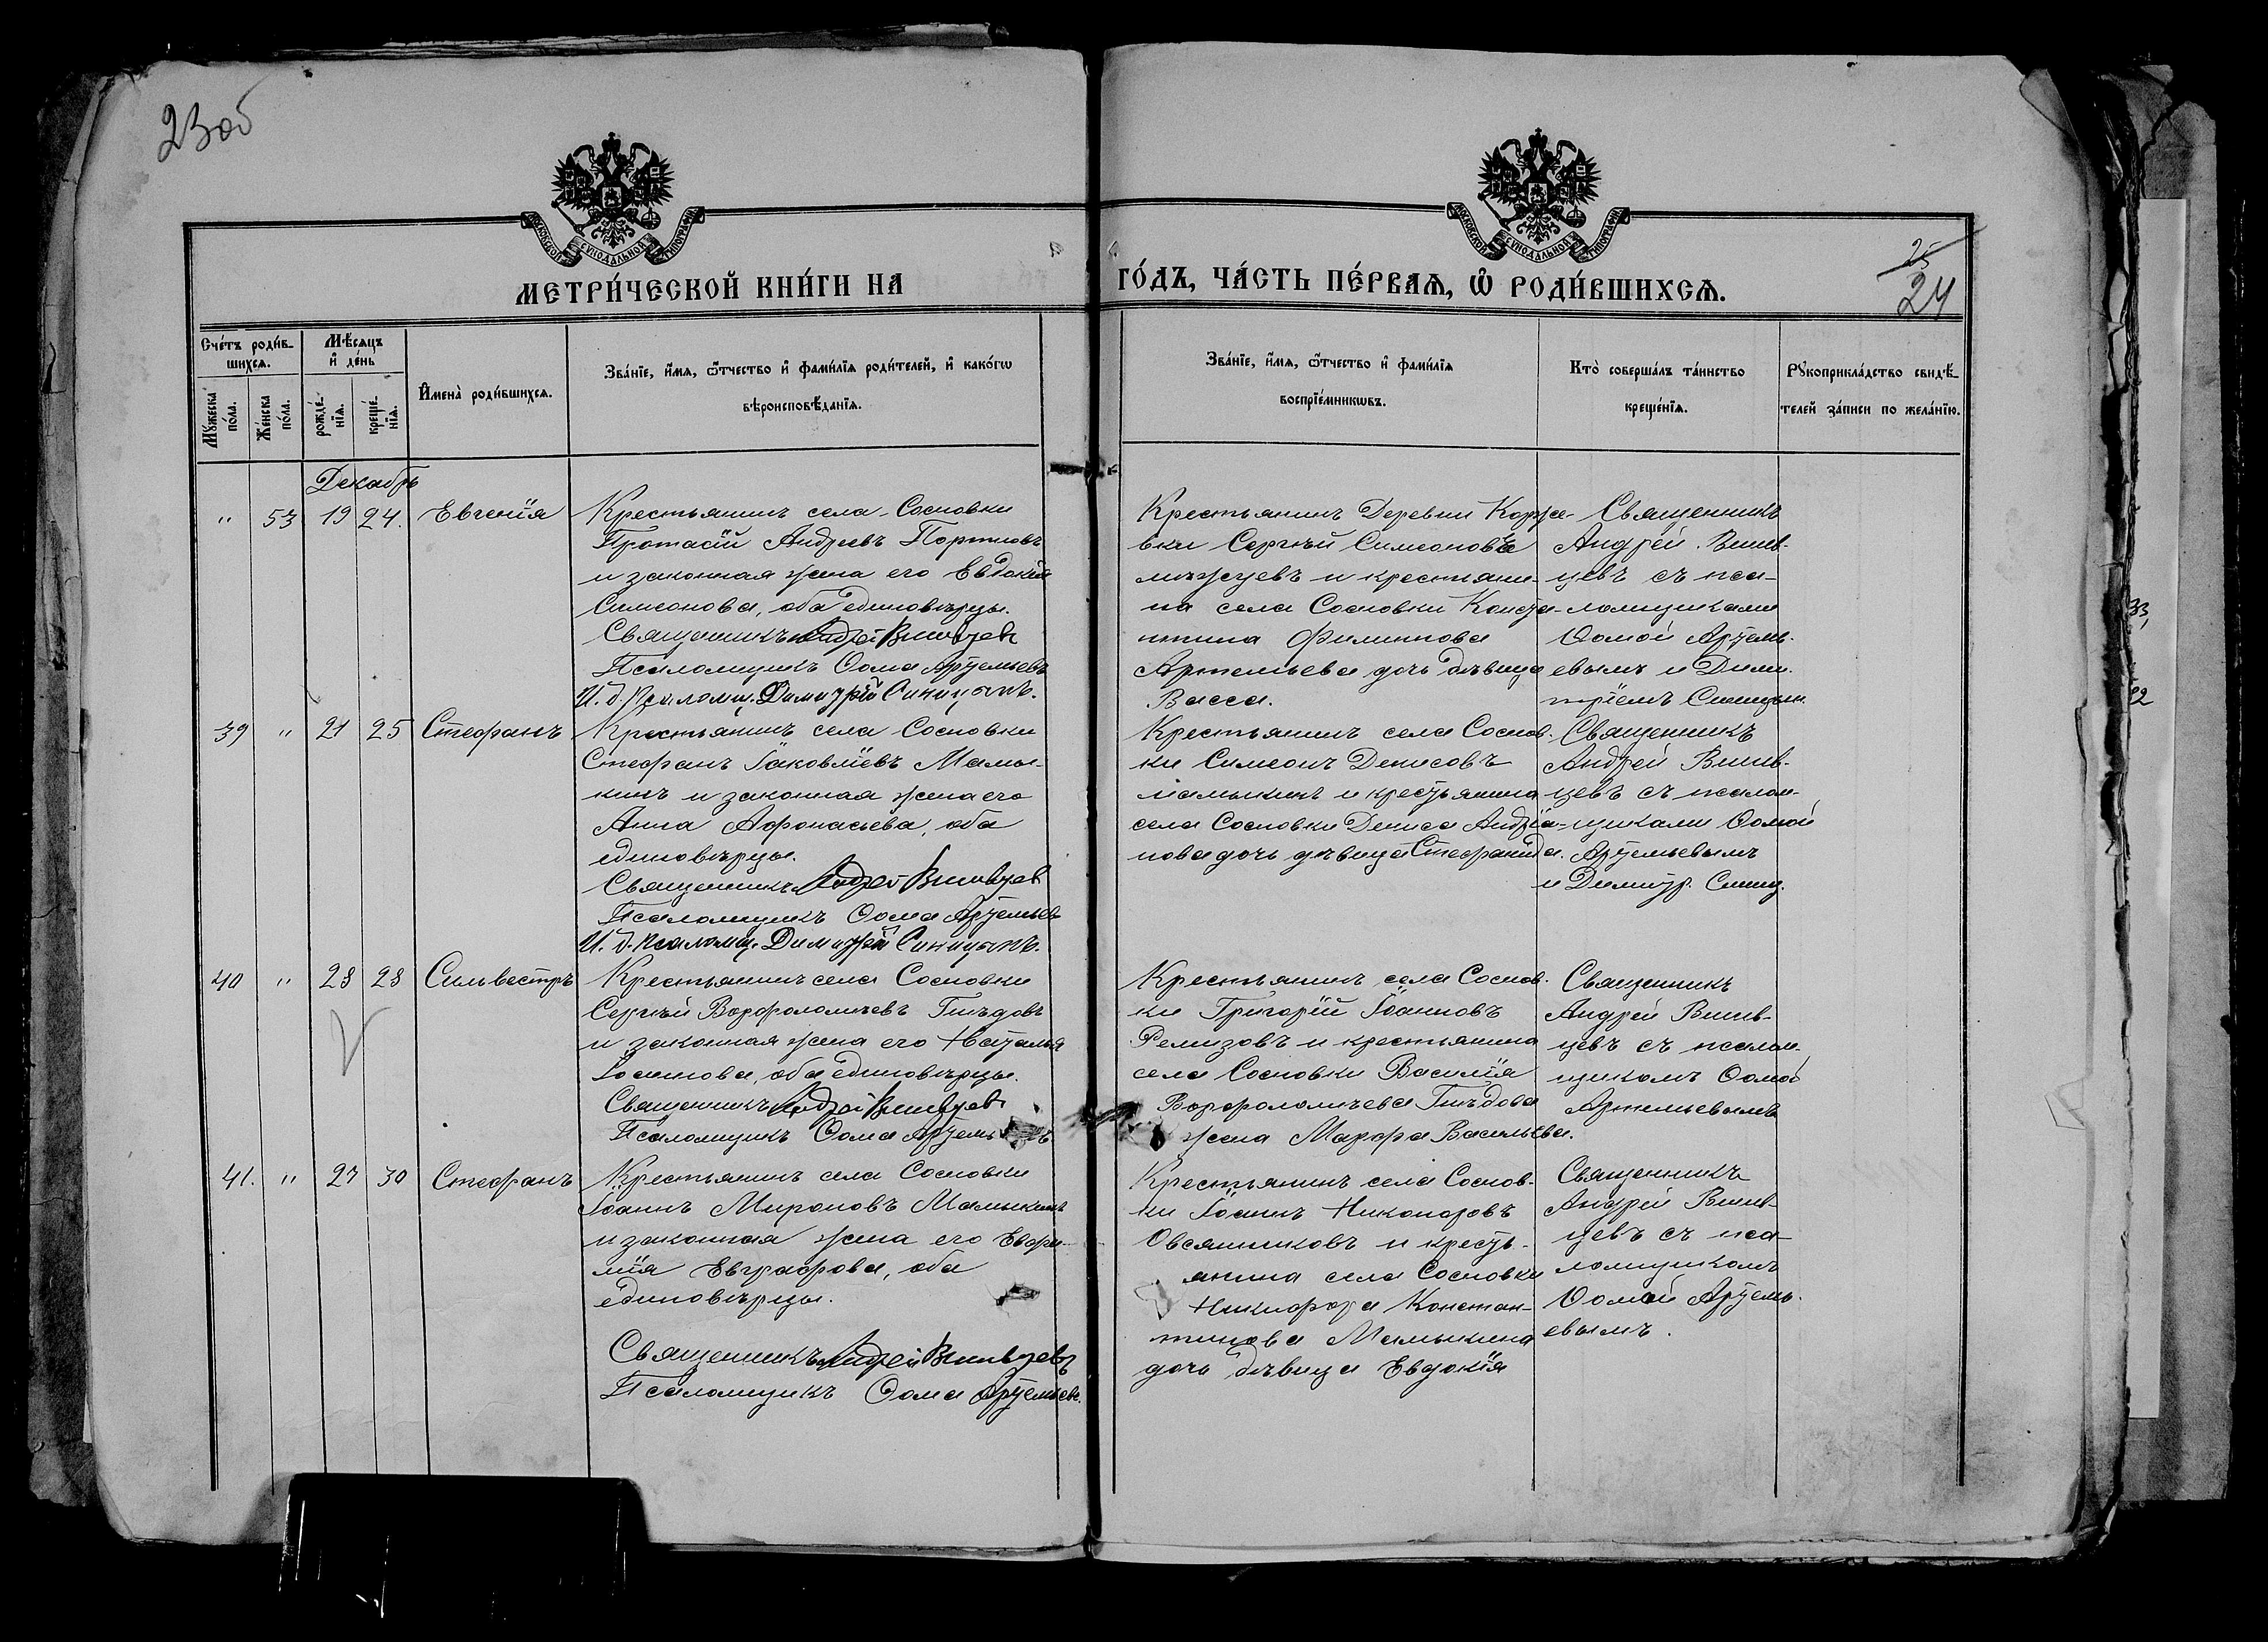 23 об
МОСКОВСКОЙ СУНОДАЛЬНОЙ ТИПОГРАФІИ
МОСКОВСКОЙ СУНОДАЛЬНОЙ ТИПОГРАФІИ
МЕТРИ́ЧЕСКОЙ КНИ́ГИ НА
ГО́ДЪ, ЧА́СТЬ ПЕ́РВАѦ, Ѡ҆ РОДИ́ВШИХСѦ.
25
24
Сче́тъ роди́в-
шихсѧ.
Мѣ́сѧцъ
и҆ де́нь
Му́жеска
по́ла.
Же́нска
по́ла.
рожде́-
нїѧ.
креще́-
нїѧ.
И҆мена̀ роди́вшихсѧ.
Зва́нїе, и҆́мѧ, ѻ҆́тчество и҆ фами́лїѧ роди́телей, и҆ како́гѡ
вѣроисповѣ́данїѧ.
Зва́нїе, и҆́мѧ, ѻ҆́тчество и҆ фами́лїѧ
воспрїе́мникѡвъ.
Кто̀ соверша́лъ та́инство
креще́нїѧ.
Рꙋкоприкла́дство свидѣ́-
телей за́писи по жела́нїю.
Декабрь
" 53 19 24. Евгенія
Крестьянинъ села Сосновки
Протасій Андреевъ Портновъ
и законная жена его Евдокія
Симеонова, оба единовѣрцы.
Священникъ Андрей Вшивцевъ
Псаломщикъ Ѳома Артемьевъ
И. д. псаломщ. Димитрій Синицынъ.
Крестьянинъ Деревни Корже-
вки Сергѣй Симеоновъ
и крестьяни-
на села Сосновки Конста-
нтина Филиппова
Артемьева дочь дѣвица
Васса.
Священникъ
Андрей Вшив-
цевъ съ пса-
ломщиками
Ѳомой Артемь-
евымъ и Дими-
тріемъ Синицын.
39 " 21 25 Стефанъ
Крестьянинъ села Сосновки
Стефанъ Іаковлевъ Мамы-
кинъ и законная жена его
Анна Афонасьева, оба
единовѣрцы.
Священникъ Андрей Вшивцев
Псаломщикъ Ѳома Артемьевъ
И. д. псаломщ. Димитрій Синицынъ.
Крестьянинъ села Соснов-
ки Симеонъ Денисовъ
Мамыкинъ и крестьянина
села Сосновки Дениса Андрія-
нова дочь дѣвица Стефанида.
Священникъ
Андрей Вшив-
цевъ съ псалом-
щиками Ѳомой
Артемьевымъ
и Димитр. Синиц.
40 " 28 28 Сильвестръ
Крестьянинъ села Сосновки
Сергѣй Ворфоломѣевъ Гнѣдовъ
и законная жена его Наталья
Іоаннова, оба единовѣрцы.
Священникъ Андрей Вшивцевъ
Псаломщикъ Ѳома Артемьевъ
Крестьянинъ села Соснов-
ки Григорій Іоанновъ
Ремизовъ и крестьянина
села Сосновки Василія
Ворфоломѣева Гнѣдова
жена Марфа Васильева.
Священникъ
Андрей Вшив-
цевъ съ псалом-
щикомъ Ѳомой
Артемьевымъ
41. " 27 30 Стефанъ
Крестьянинъ села Сосновки
Іоаннъ Мироновъ Мамыкинъ
и законная жена его Евфи-
мія Евграфова, оба
единовѣрцы.
Священникъ Андрей Вшивцевъ
Псаломщикъ Ѳома Артемьевъ.
Крестьянинъ села Соснов-
ки Іоаннъ Никоноровъ
Овсянниковъ и кресть-
янина села Сосновки
Никифора Констан-
тинова Мамыкина
дочь дѣвица Евдокія
Священникъ
Андрей Вшив-
цевъ съ пса-
ломщикомъ
Ѳомой Артемь-
евымъ.